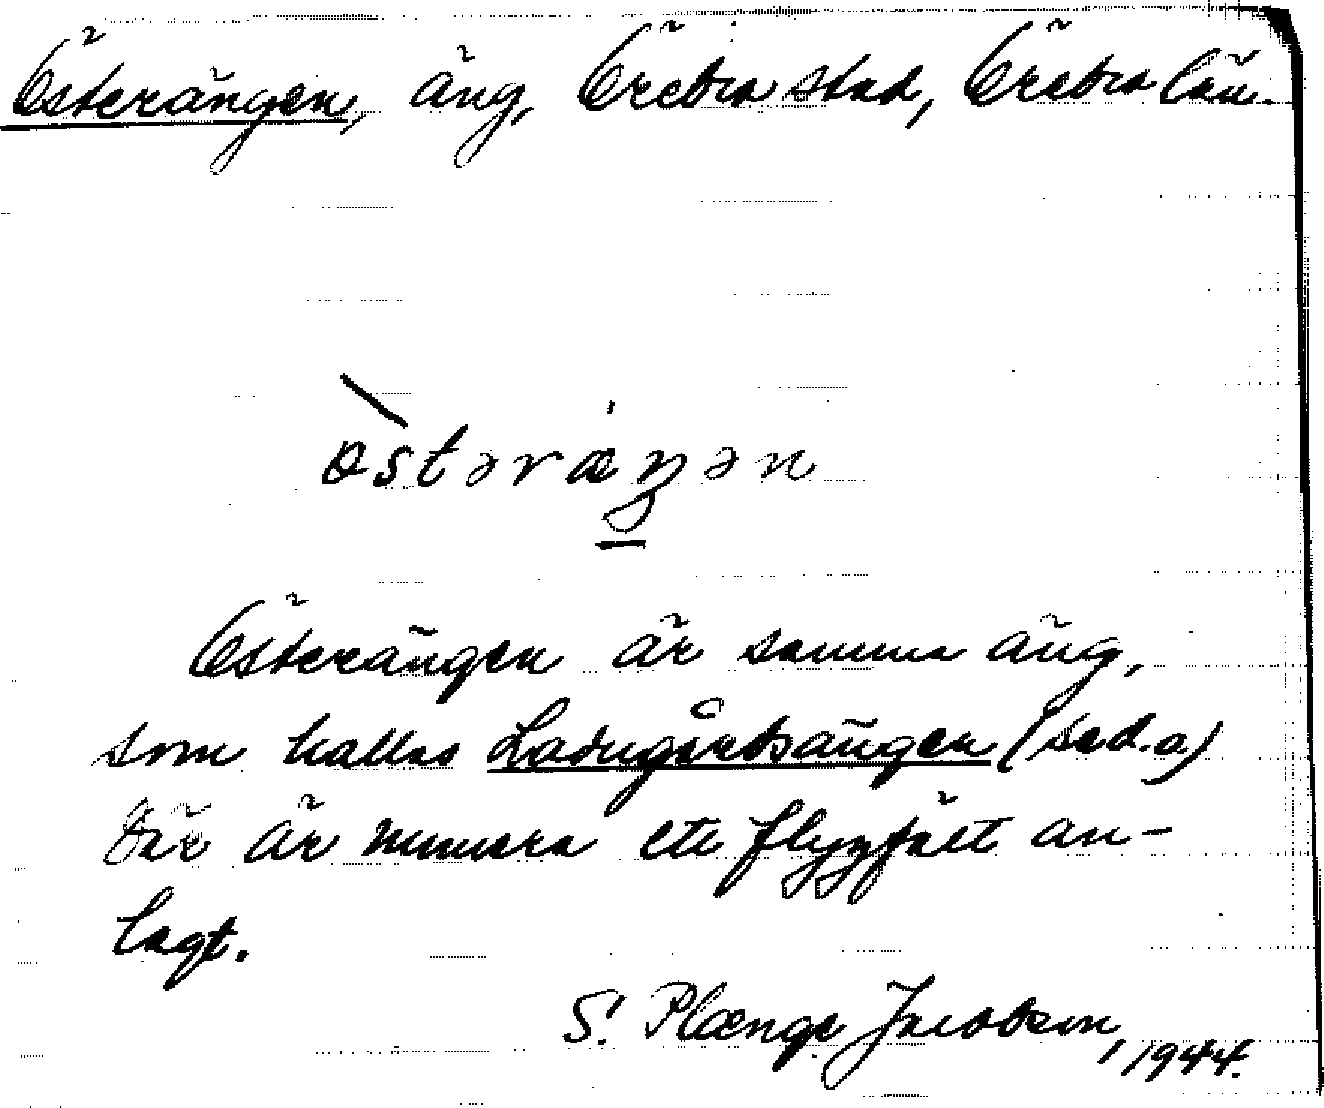 Österängen, äng, Örebro stad, Örebro län.
östəräŋən
Österängen är samma äng,
som kallas Ladugårdsängen (se d.o.)
Där är numera ett flygfält an-
lagt.
S. Plænge Jacobson, 1944.